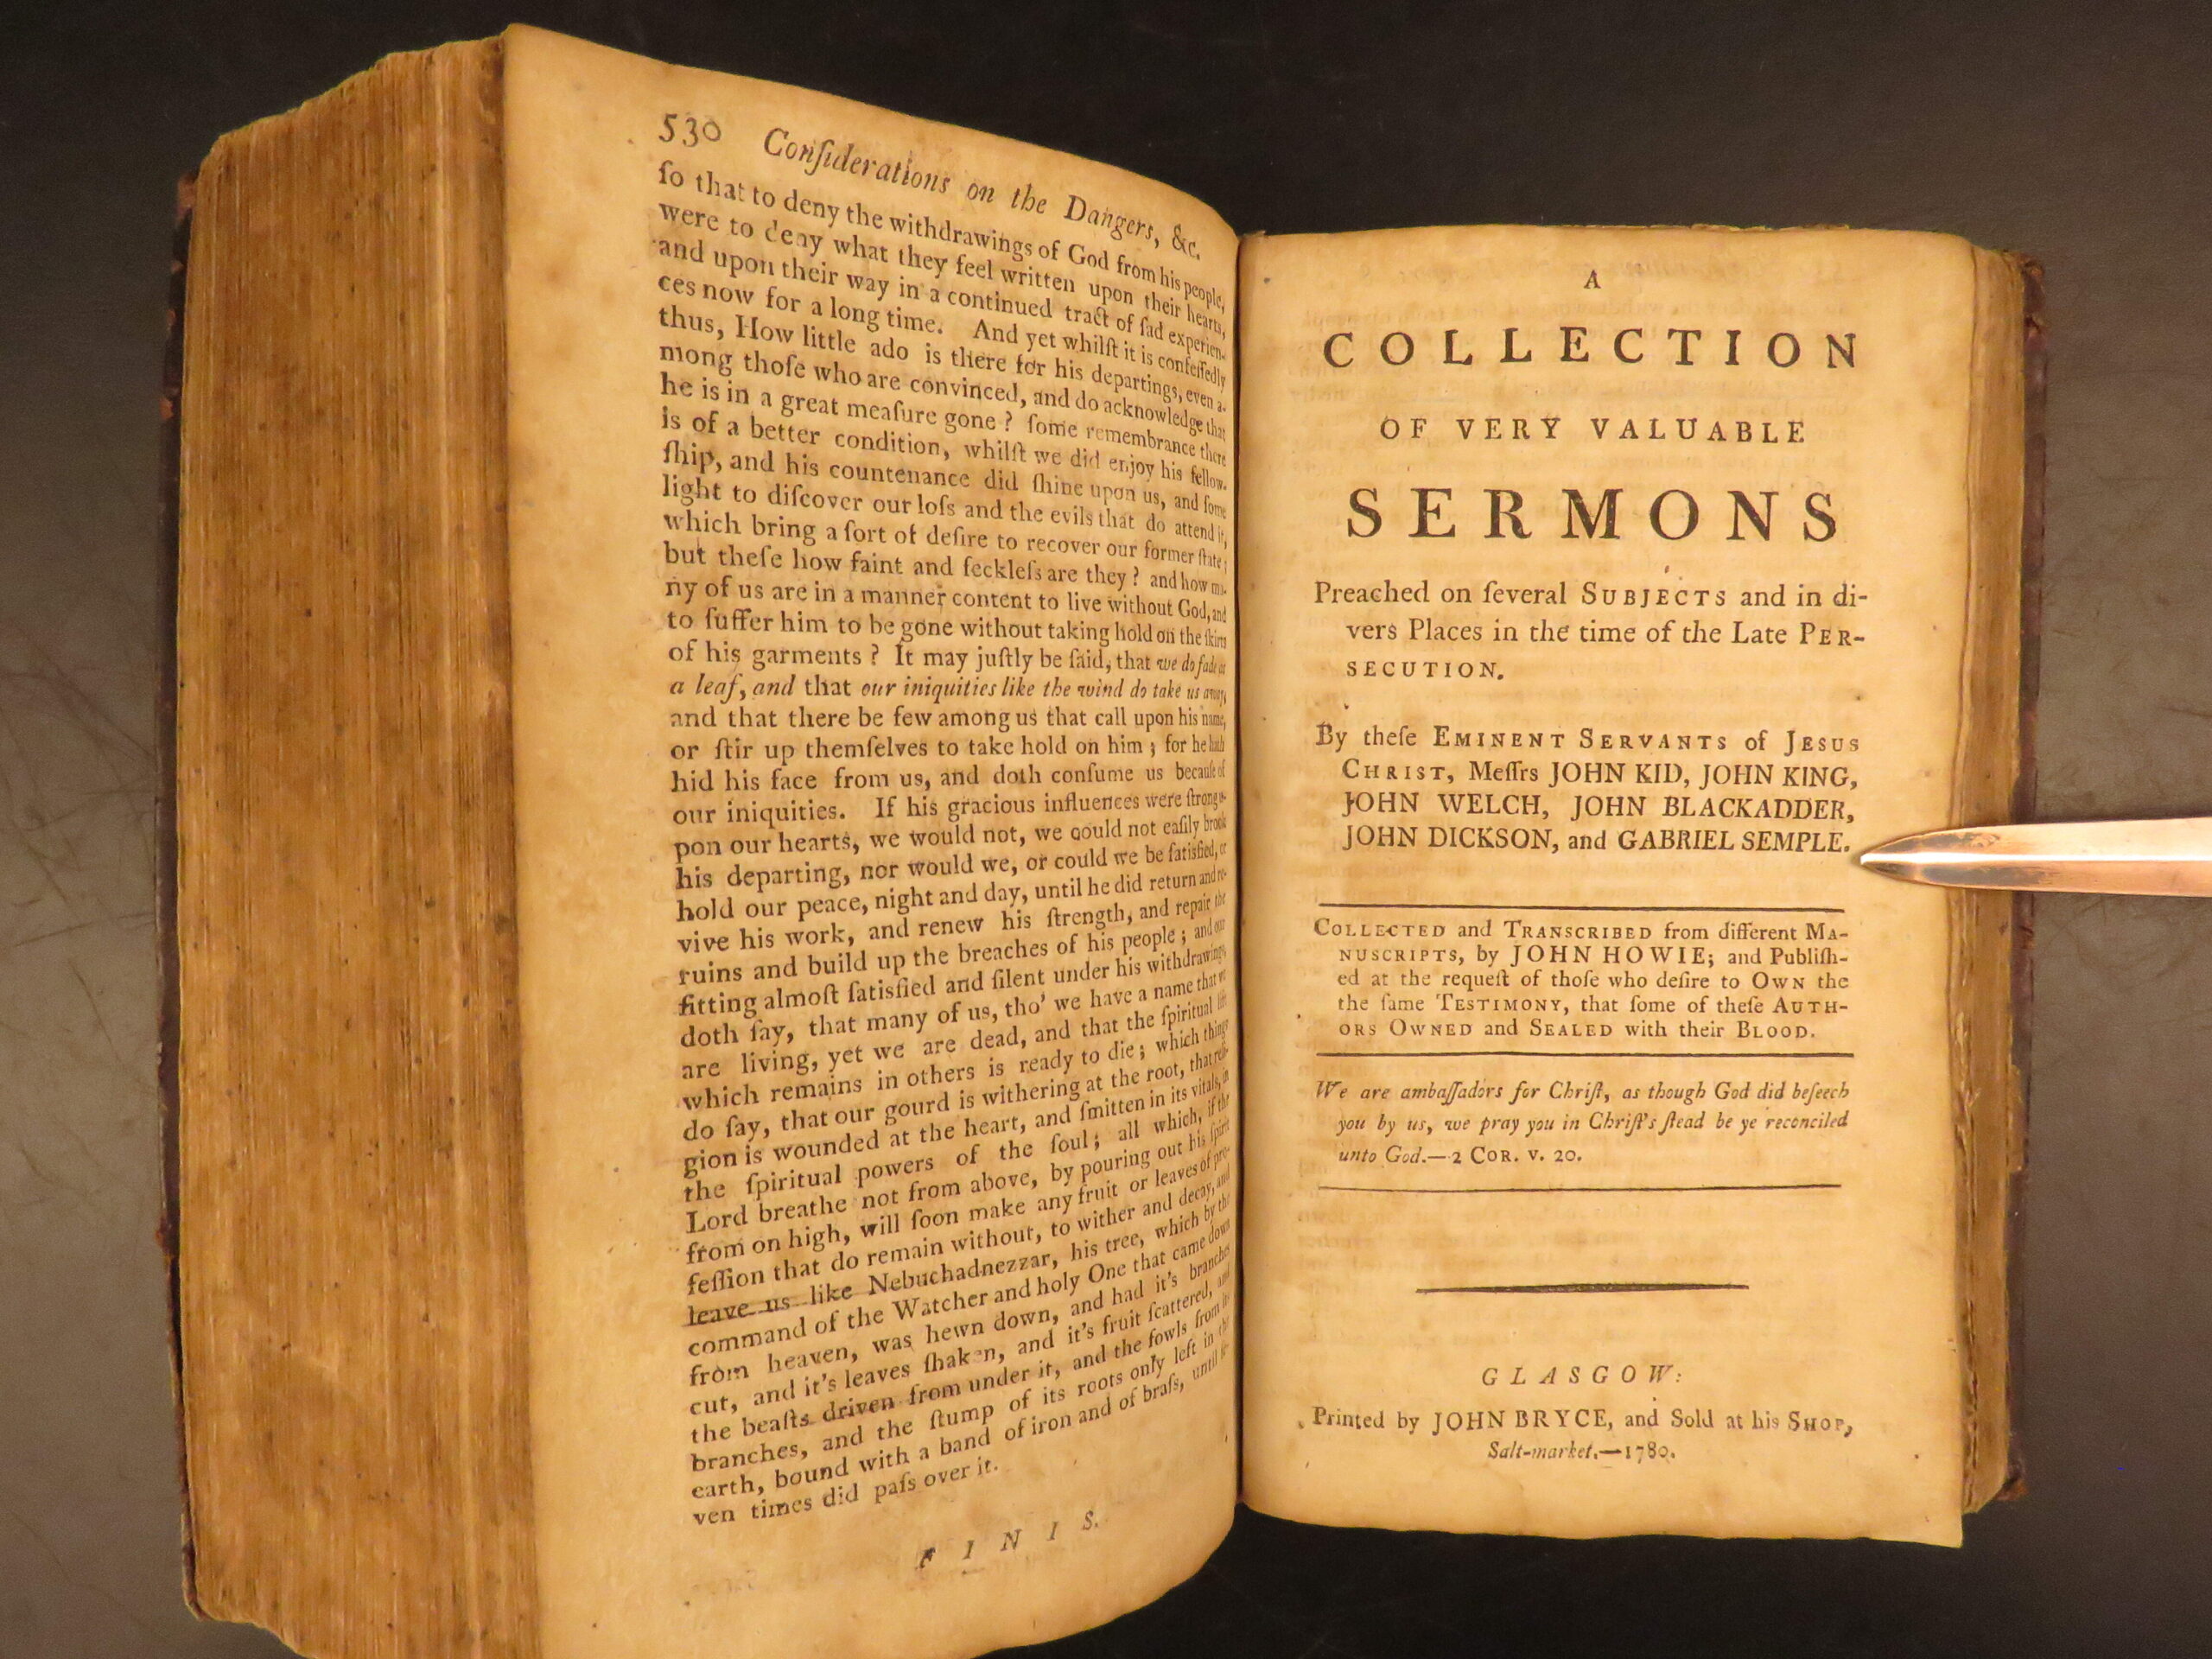 530 Conſiderations on the Dangers, &c.
ſo that to deny the withdrawings of God from his people,
were to deny what they feel written upon their hearts,
and upon their way in a continued tract of ſad experien-
ces now for a long time. And yet whilſt it is confeſſedly
thus, How little ado is there for his departings, even a-
mong thoſe who are convinced, and do acknowledge that
he is in a great meaſure gone ? ſome remembrance there
is of a better condition, whilſt we did enjoy his fellow-
ſhip, and his countenance did ſhine upon us, and ſome
light to diſcover our loſs and the evils that do attend it,
which bring a ſort of deſire to recover our former ſtate ;
but theſe how faint and feckleſs are they ? and how ma-
ny of us are in a manner content to live without God, and
to ſuffer him to be gone without taking hold on the ſkirts
of his garments ? It may juſtly be ſaid, that we do fade as
a leaf, and that our iniquities like the wind do take us away,
and that there be few among us that call upon his name,
or ſtir up themſelves to take hold on him ; for he hath
hid his face from us, and doth conſume us becauſe of
our iniquities. If his gracious influences were ſtrong u-
pon our hearts, we would not, we could not eaſily brook
his departing, nor would we, or could we be ſatisfied, or
hold our peace, night and day, until he did return and re-
vive his work, and renew his ſtrength, and repair the
ruins and build up the breaches of his people ; and our
ſitting almoſt ſatisfied and ſilent under his withdrawings,
doth ſay, that many of us, tho' we have a name that we
are living, yet we are dead, and that the ſpiritual life
which remains in others is ready to die ; which things
do ſay, that our gourd is withering at the root, that reli-
gion is wounded at the heart, and ſmitten in its vitals, in
the ſpiritual powers of the ſoul ; all which, if the
Lord breathe not from above, by pouring out his ſpirit
from on high, will ſoon make any fruit or leaves of pro-
feſſion that do remain without, to wither and decay, and
leave us like Nebuchadnezzar, his tree, which by the
command of the Watcher and holy One that came down
from heaven, was hewn down, and had it's branches
cut, and it's leaves ſhaken, and it's fruit ſcattered, and
the beaſts driven from under it, and the fowls from its
branches, and the ſtump of its roots only left in the
earth, bound with a band of iron and of braſs, until ſe-
ven times did paſs over it.
F I N I S.
A
COLLECTION
OF VERY VALUABLE
SERMONS
Preached on ſeveral SUBJECTS and in di-
vers Places in the time of the Late PER-
SECUTION.
By theſe EMINENT SERVANTS of JESUS
CHRIST, Meſſrs JOHN KID, JOHN KING,
JOHN WELCH, JOHN BLACKADDER,
JOHN DICKSON, and GABRIEL SEMPLE.
COLLECTED and TRANSCRIBED from different MA-
NUSCRIPTS, by JOHN HOWIE; and Publiſh-
ed at the requeſt of thoſe who deſire to OWN the
the ſame TESTIMONY, that ſome of theſe AUTH-
ORS OWNED and SEALED with their BLOOD.
We are ambaſſadors for Chriſt, as though God did beſeech
you by us, we pray you in Chriſt's ſtead be ye reconciled
unto God.—2 COR. v. 20.
GLASGOW:
Printed by JOHN BRYCE, and Sold at his SHOP,
Salt-market.—1780.